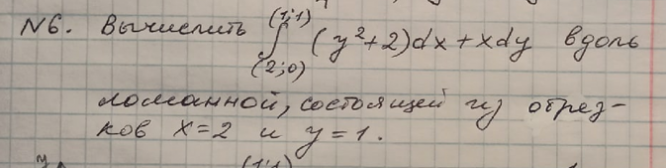 N6. Вычислить ∫ (2;0) (1;1) (y²+2)dx+xdy вдоль
ломанной, состоящей из отрез-
ков x=2 и y=1.